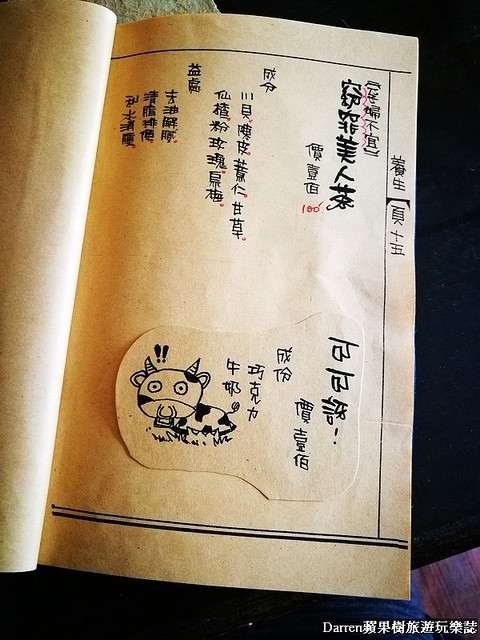 養生【頁十五
(孕婦不宜)
窈窕美人茶
價壹佰
100
成分
川貝、陳皮、薏仁、甘草、
仙楂粉、玫瑰、烏梅、
益處
去油解膩、
清腸排便、
利水消腫、
可可話!
價壹佰
成份
巧克力
牛奶
!!
Darren蘋果樹旅遊玩樂誌